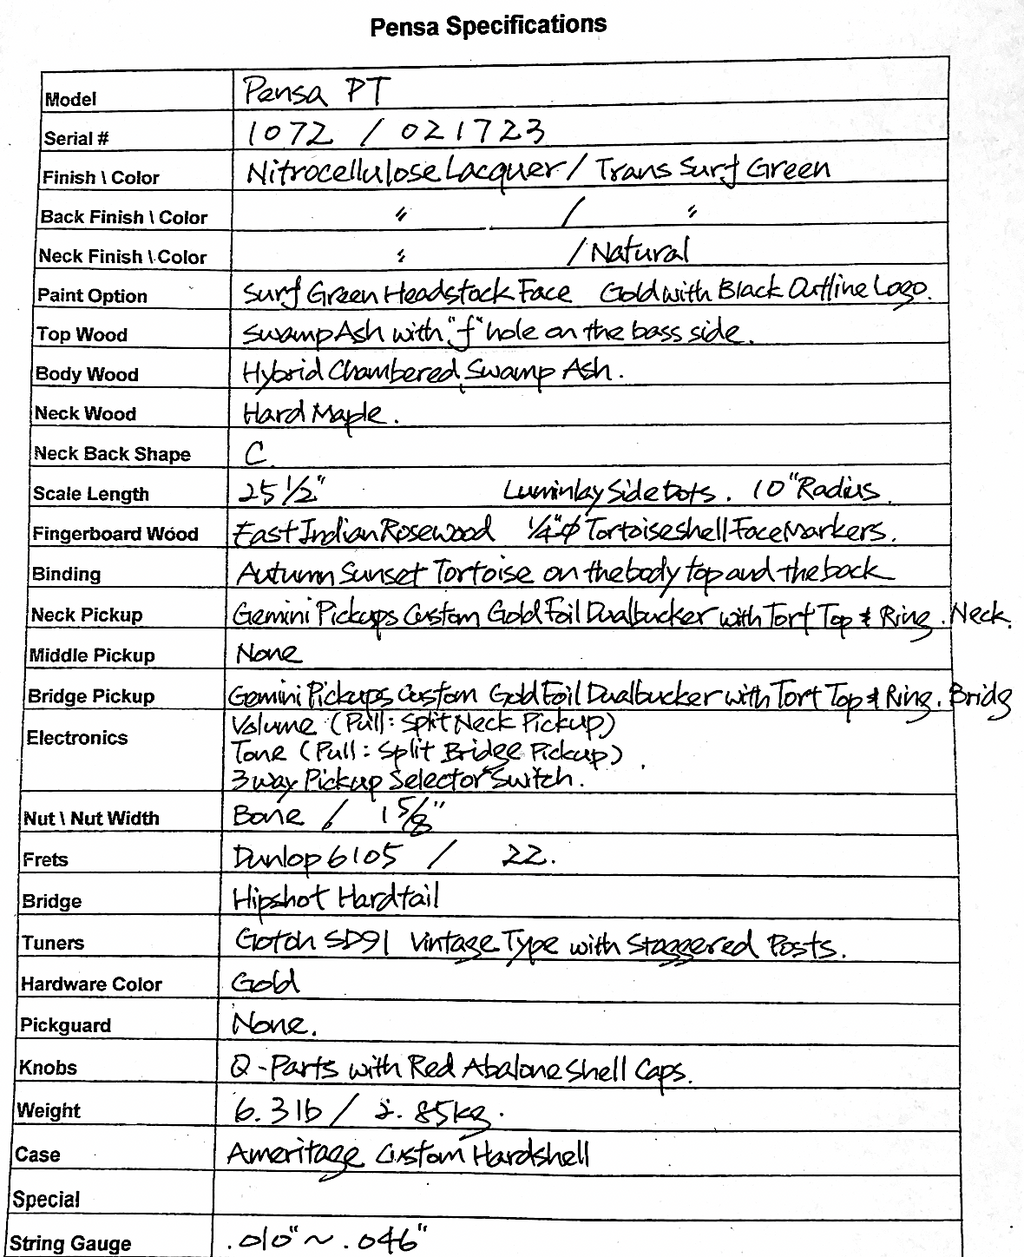 Pensa Specifications
Model Pensa PT
Serial # 1072 / 021723
Finish \ Color Nitrocellulose Lacquer / Trans Surf Green
Back Finish \ Color 〃 / 〃
Neck Finish \ Color 〃 / Natural
Paint Option Surf Green Headstock Face Gold with Black Outline Logo.
Top Wood Swamp Ash with "f" hole on the bass side.
Body Wood Hybrid Chambered, Swamp Ash.
Neck Wood Hard Maple.
Neck Back Shape C
Scale Length 25 1/2" Luminlay Side Dots. 10" Radius.
Fingerboard Wood East Indian Rosewood 1/4"φ Tortoiseshell Face Markers.
Binding Autumn Sunset Tortoise on the body top and the back
Neck Pickup Gemini Pickups Custom Gold Foil Dualbucker with Tort Top & Ring. Neck.
Middle Pickup None
Bridge Pickup Gemini Pickups Custom Gold Foil Dualbucker with Tort Top & Ring. Bridg
Electronics Volume (Pull: Split Neck Pickup)
Tone (Pull: Split Bridge Pickup)
3 way Pickup Selector Switch.
Nut \ Nut Width Bone / 1 5/8"
Frets Dunlop 6105 / 22.
Bridge Hipshot Hardtail
Tuners Gotoh SD91 Vintage Type with Staggered Posts.
Hardware Color Gold
Pickguard None.
Knobs Q-Parts with Red Abalone Shell Caps.
Weight 6.3 lb / 2.85kg.
Case Ameritage Custom Hardshell
Special
String Gauge .010" ~ .046"